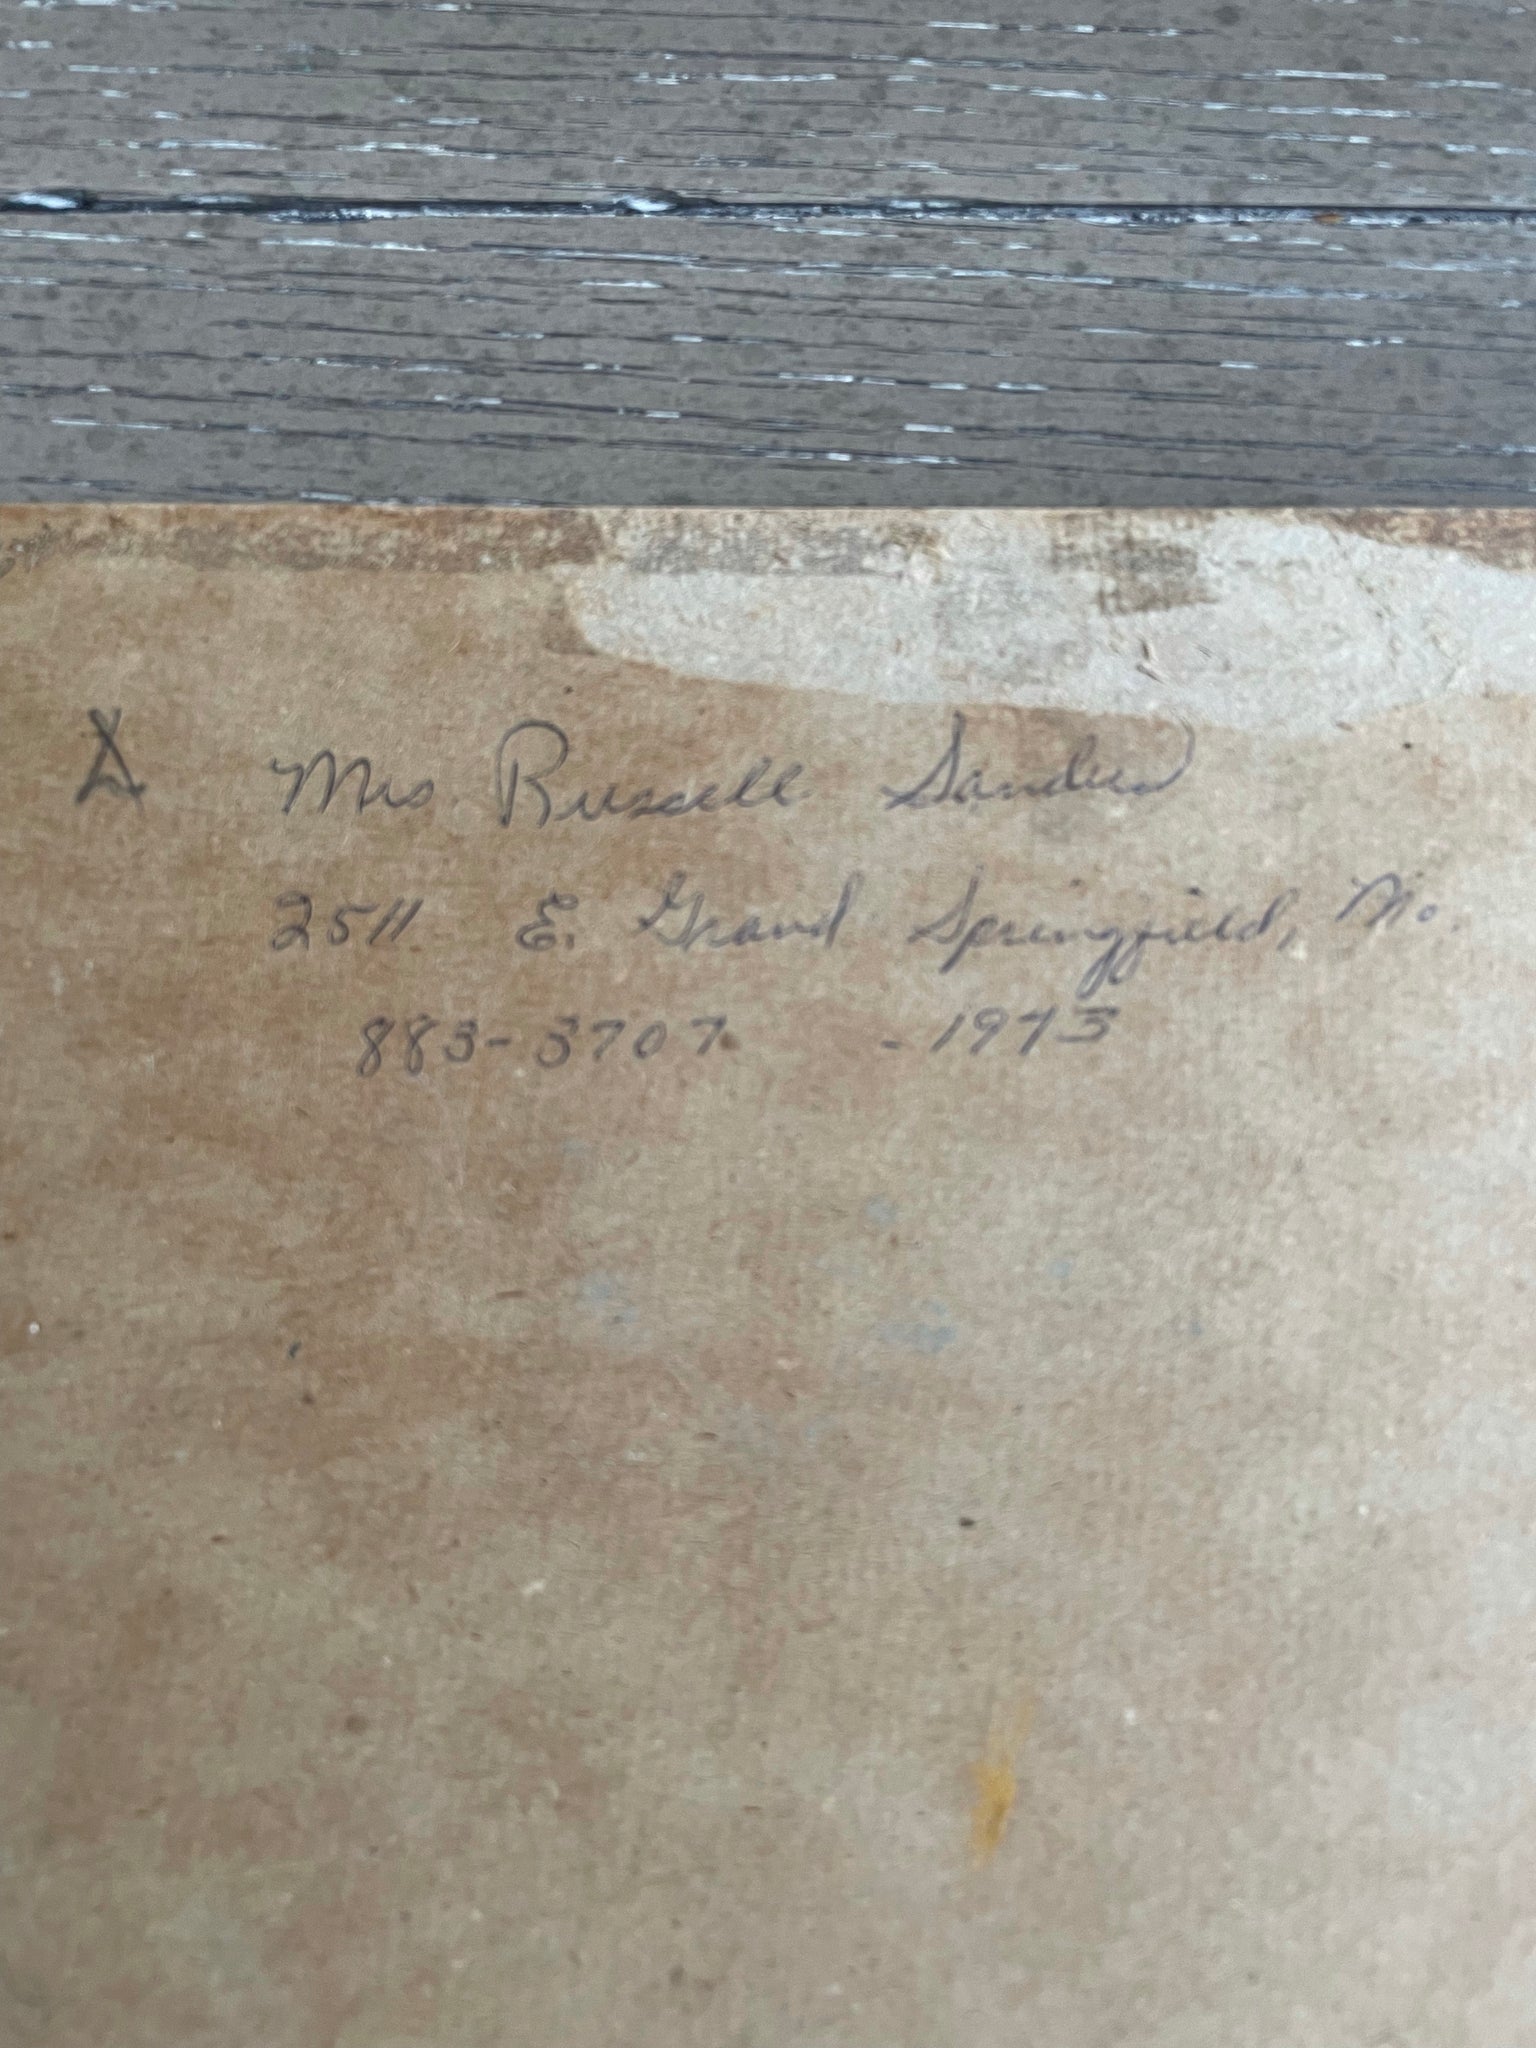 A Mrs. Russell Sanders
2511 E. Grand Springfield, Mo.
883-3707 - 1973